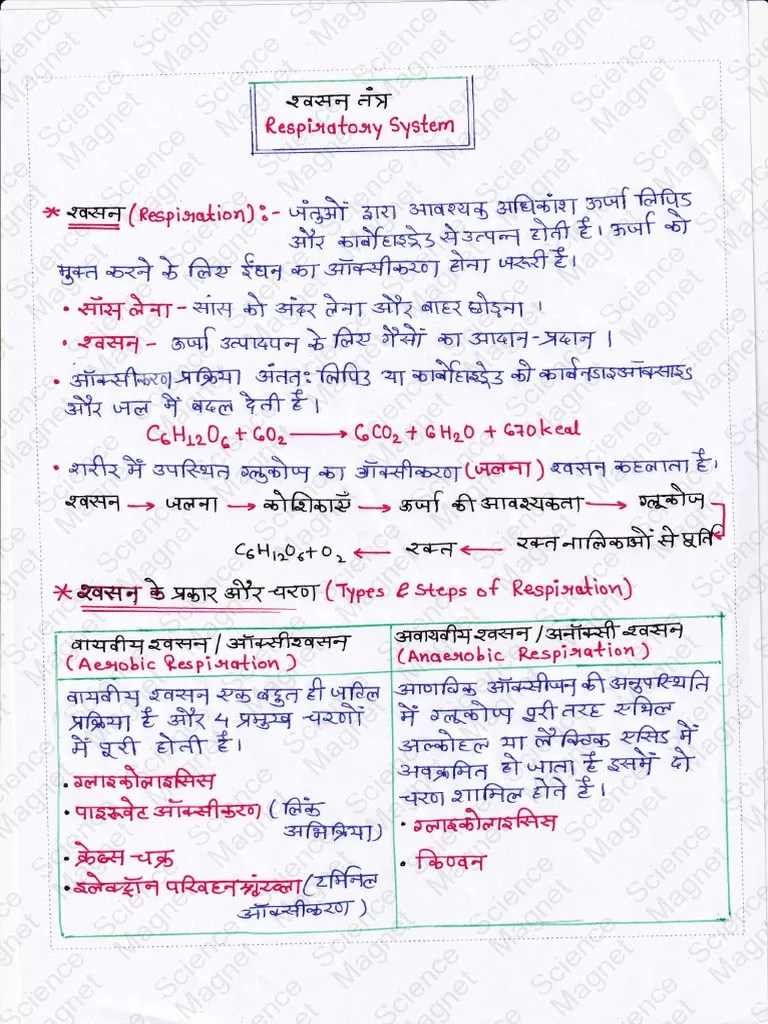 श्वसन तंत्र
Respiratory System
* श्वसन (Respiration) :- जंतुओं द्वारा आवश्यक अधिकांश ऊर्जा लिपिड
और कार्बोहाइड्रेड से उत्पन्न होती हैं। ऊर्जा को
मुक्त करने के लिए ईंधन का ऑक्सीकरण होना जरूरी हैं।
• साँस लेना - सांस को अंदर लेना और बाहर छोड़ना ।
• श्वसन - ऊर्जा उत्पादपन के लिए गैसों का आदान-प्रदान ।
• ऑक्सीकरण प्रक्रिया अंततः लिपिड या कार्बोहाइड्रेड को कार्बनडाइऑक्साइड
और जल में बदल देती हैं।
C6H12O6 + 6O2 → 6CO2 + 6H2O + 670kcal
• शरीर में उपस्थित ग्लुकोज का ऑक्सीकरण (जलना) श्वसन कहलाता है।
श्वसन → जलना → कोशिकाएँ → ऊर्जा की आवश्यकता → ग्लूकोज
C6H12O6+O2 ← रक्त ← रक्त नालिकाओं से पूर्ति
* श्वसन के प्रकार और चरण (Types & Steps of Respiration)
वायवीय श्वसन / ऑक्सीश्वसन
(Aerobic Respiration)
वायवीय श्वसन एक बहुत ही जटिल
प्रक्रिया हैं और 4 प्रमुख चरणों
में पूरी होती हैं।
• ग्लाइकोलाइसिस
• पाइरूवेट ऑक्सीकरण (लिंक
अभिक्रिया)
• क्रेब्स चक्र
• इलेक्ट्रॉन परिवहन श्रृंख्ला (टर्मिनल
ऑक्सीकरण)
अवायवीय श्वसन / अनॉक्सी श्वसन
(Anaerobic Respiration)
आणविक ऑक्सीजन की अनुपस्थिति
में ग्लूकोज पूरी तरह एथिल
अल्कोहल या लैक्टिक एसिड में
अवक्रमित हो जाता हैं इसमें दो
चरण शामिल होते हैं।
• ग्लाइकोलाइसिस
• किण्वन
Science Magnet